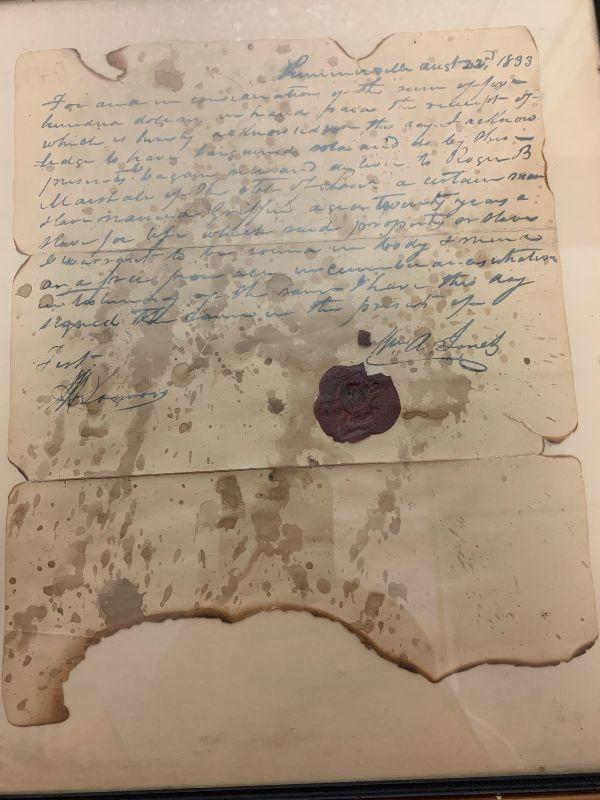 Summerville Aust 22d 1833
For and in consideration of the sum of five
hundred dollars in hand paid the receipt of
which is hereby acknowledged this day I acknow
ledge to have bargained sold and do by these
presents bargain sell and deliver to Roger B
Marshale of the State of a certain man
slave named Griffin aged twenty years a
slave for life which said property or slave
I warrant to be sound in body & mind
and free from all incumberances whatsoe
in testimony of the same I have this day
signed the same in the presents of
Test
Wm A. Jones